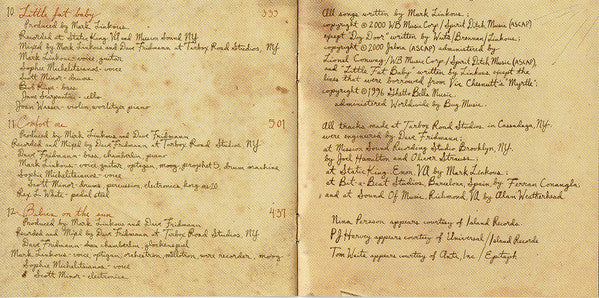 10. Little fat baby 333
Produced by Mark Linkous
Recorded at Static King, VA and Mission Sound NY
Mixed by Mark Linkous and Dave Fridmann at Tarbox Road Studios, NY
Mark Linkous - voice, guitar
Sophie Michelitsianos - voice
Scott Minor - drums
Bob Rupe - bass
Jane Scarpantoni - cello
Joan Wasser - violin, wurlitzer piano
11. Comfort me 501
Produced by Mark Linkous and Dave Fridmann
Recorded and Mixed by Dave Fridmann at Tarbox Road Studios, NY
Dave Fridmann - bass, chamberlin, piano
Mark Linkous - voice, guitar, optigan, moog, prophet 5, drum machine
Sophie Michelitsianos - voice
Scott Minor - drums, percussion, electronics, korg
Rey L. White - pedal steel
12. Babies on the sun 437
Produced by Mark Linkous and Dave Fridmann
Recorded and Mixed by Dave Fridmann at Tarbox Road Studios, NY
Dave Fridmann - chamberlin, glockenspiel
Mark Linkous - voice, optigan, orchestron, mellotron, wire recorder, moog
Sophie Michelitsianos - voice
& Scott Minor - electronics
All songs written by Mark Linkous;
copyright © 2000 WB Music Corp / Spirit Ditch Music (ASCAP)
except "Dog Door" written by Waits/Brennan/Linkous;
copyright © 2000 Jalma (ASCAP) administered by
Lionel Conway / WB Music Corp / Spirit Ditch Music (ASCAP),
and "Little Fat Baby" written by Linkous except the
lines that were borrowed from Vic Chesnutt's "Myrtle";
copyright © 1996 Ghetto Bells Music
administered Worldwide by Bug Music.
All tracks made at Tarbox Road Studios in Cassadaga, NY.
were engineered by Dave Fridmann;
at Mission Sound Recording Studio Brooklyn, NY.
by Joel Hamilton and Oliver Strauss;
at Static King, Enon, VA by Mark Linkous;
at Bat-a-Beat Studios, Barcelona, Spain by Ferran Conangla;
and at Sound Of Music, Richmond, VA by Alan Weatherhead.
Nina Persson appears courtesy of Island Records
PJ Harvey appears courtesy of Universal / Island Records
Tom Waits appears courtesy of Anti, Inc / Epitaph